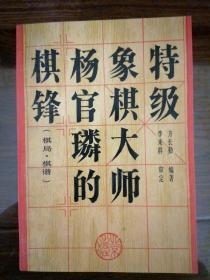 特级
象棋大师
杨官璘的
棋锋
（棋局·棋谱）
方长勤 编著
李来群 审定